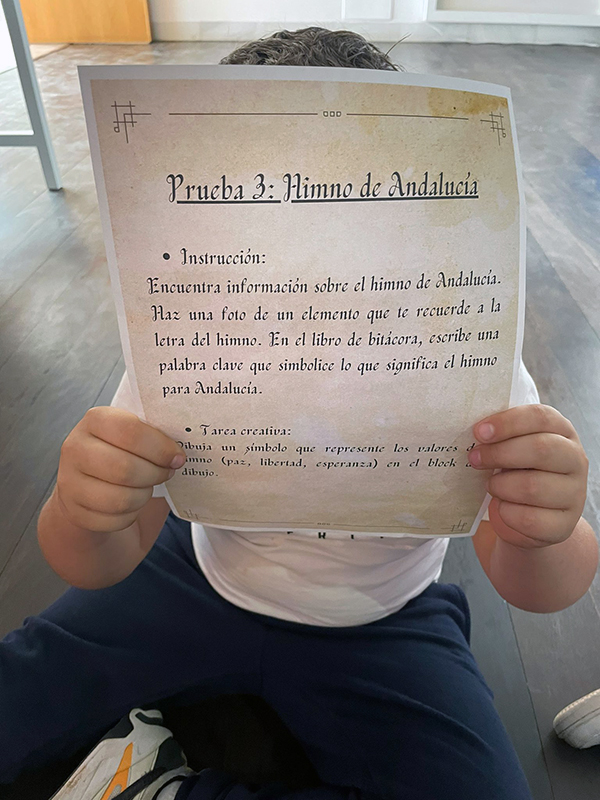 Prueba 3: Himno de Andalucía
• Instrucción:
Encuentra información sobre el himno de Andalucía.
Haz una foto de un elemento que te recuerde a la
letra del himno. En el libro de bitácora, escribe una
palabra clave que simbolice lo que significa el himno
para Andalucía.
• Tarea creativa:
Dibuja un símbolo que represente los valores
(paz, libertad, esperanza) en el block
dibujo.